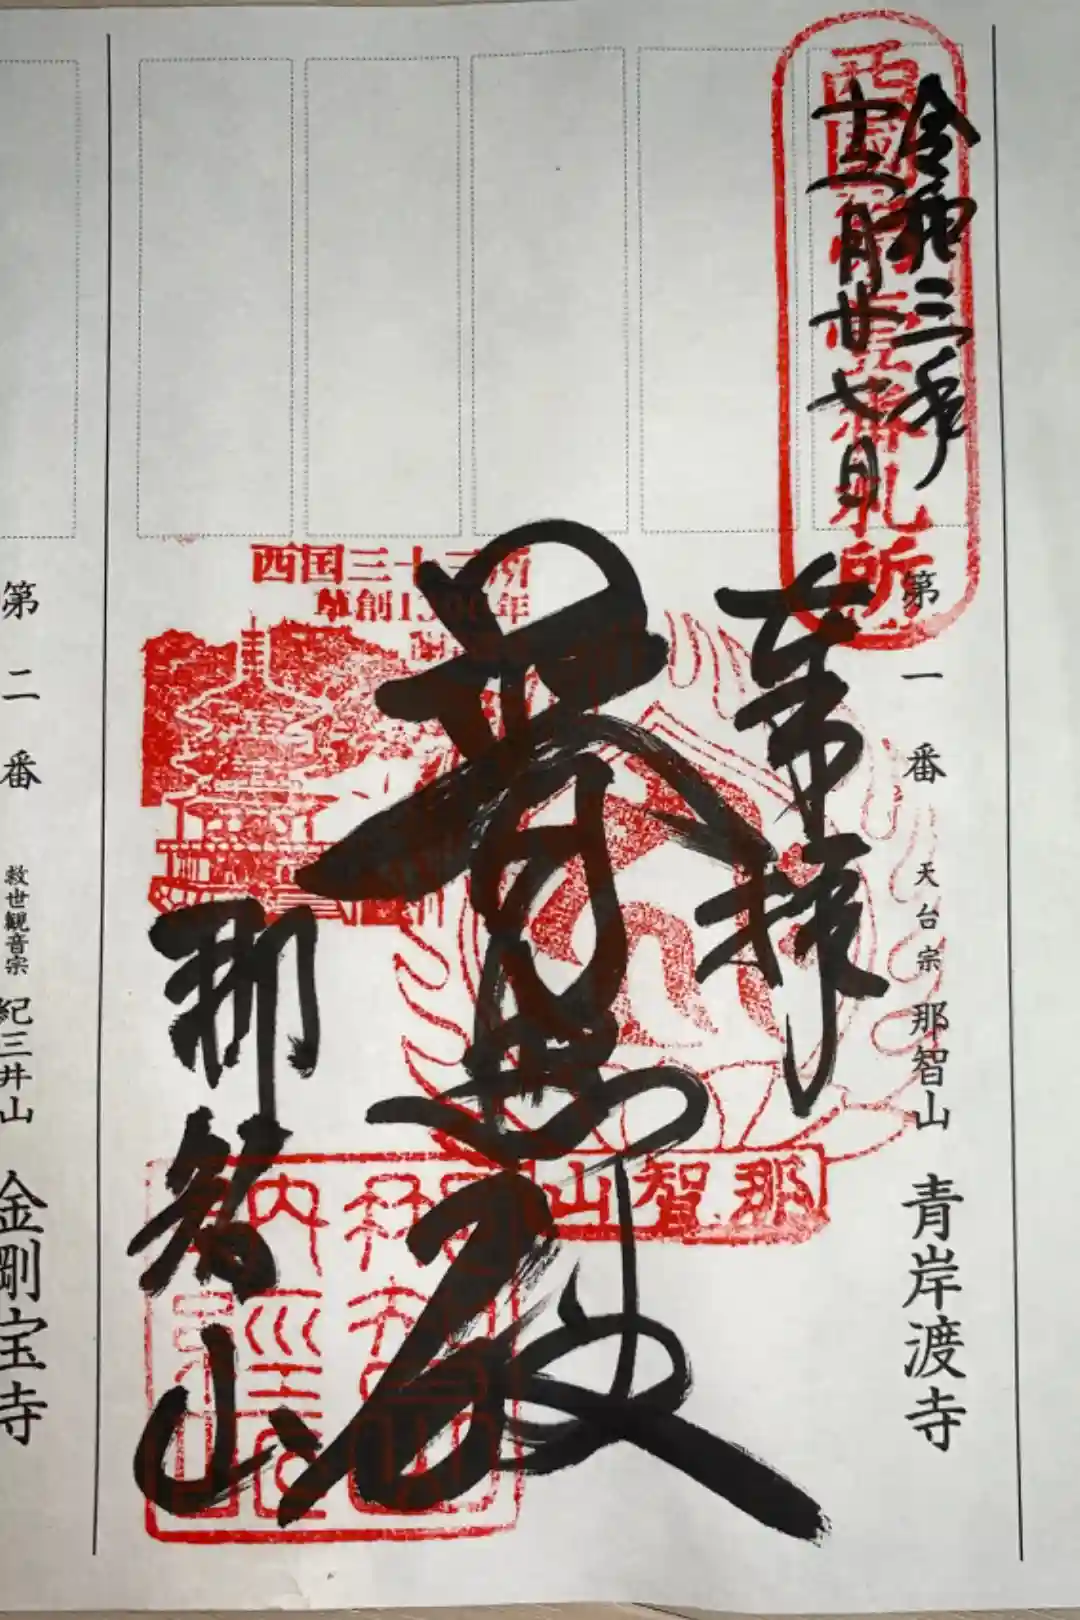 西國第壹番札所
令和三年
十二月廿七日
第一番 天台宗 那智山 青岸渡寺
奉拝
普照殿
那智山
西国三十三所
草創1300年
那智山
第二番 救世観音宗 紀三井山 金剛宝寺